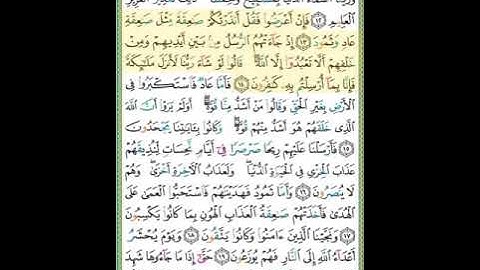 وَزَيَّنَّا السَّمَاءَ الدُّنْيَا بِمَصَابِيحَ وَحِفْظًا ذَلِكَ تَقْدِيرُ الْعَزِيزِ
الْعَلِيمِ ۝١٢ فَإِنْ أَعْرَضُوا فَقُلْ أَنذَرْتُكُمْ صَاعِقَةً مِّثْلَ صَاعِقَةِ
عَادٍ وَثَمُودَ ۝١٣ إِذْ جَاءَتْهُمُ الرُّسُلُ مِن بَيْنِ أَيْدِيهِمْ وَمِنْ
خَلْفِهِمْ أَلَّا تَعْبُدُوا إِلَّا اللَّهَ قَالُوا لَوْ شَاءَ رَبُّنَا لَأَنزَلَ مَلَائِكَةً
فَإِنَّا بِمَا أُرْسِلْتُم بِهِ كَافِرُونَ ۝١٤ فَأَمَّا عَادٌ فَاسْتَكْبَرُوا فِي
الْأَرْضِ بِغَيْرِ الْحَقِّ وَقَالُوا مَنْ أَشَدُّ مِنَّا قُوَّةً أَوَلَمْ يَرَوْا أَنَّ اللَّهَ
الَّذِي خَلَقَهُمْ هُوَ أَشَدُّ مِنْهُمْ قُوَّةً وَكَانُوا بِآيَاتِنَا يَجْحَدُونَ
۝١٥ فَأَرْسَلْنَا عَلَيْهِمْ رِيحًا صَرْصَرًا فِي أَيَّامٍ نَّحِسَاتٍ لِّنُذِيقَهُمْ
عَذَابَ الْخِزْيِ فِي الْحَيَاةِ الدُّنْيَا وَلَعَذَابُ الْآخِرَةِ أَخْزَى وَهُمْ
لَا يُنصَرُونَ ۝١٦ وَأَمَّا ثَمُودُ فَهَدَيْنَاهُمْ فَاسْتَحَبُّوا الْعَمَى عَلَى
الْهُدَى فَأَخَذَتْهُمْ صَاعِقَةُ الْعَذَابِ الْهُونِ بِمَا كَانُوا يَكْسِبُونَ
۝١٧ وَنَجَّيْنَا الَّذِينَ آمَنُوا وَكَانُوا يَتَّقُونَ ۝١٨ وَيَوْمَ يُحْشَرُ
أَعْدَاءُ اللَّهِ إِلَى النَّارِ فَهُمْ يُوزَعُونَ ۝١٩ حَتَّى إِذَا مَا جَاءُوهَا شَهِدَ